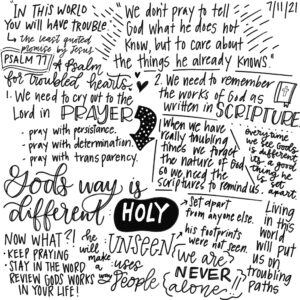 "IN THIS WORLD
YOU WILL HAVE TROUBLE"
↳ the least quoted
promise by Jesus
PSALM 77
A Psalm
for troubled hearts
"We don't pray to tell
God what he does not
know, but to care about
the things he already knows."
7/11/21
1. We need to cry out to the
Lord in PRAYER
pray with persistance.
pray with determination.
pray with transparency.
2. We need to remember
the works of God as
written in SCRIPTURE
When we have
really troubling
times we forget
the nature of God
so we need the
scriptures to remind us.
everytime
we see God's
different
its a good
thing he's
set
apart.
God's way is
different
HOLY
→ set apart
from anyone else.
UNSEEN
→ his footprints
were not seen.
he
will
make
a
way
uses
People
we are
NEVER
alone!
Living
in this
world
will put
us on
troubling
paths
NOW WHAT?!
· KEEP PRAYING
· STAY IN THE WORD
REVIEW GOD'S WORKS
IN YOUR LIFE!